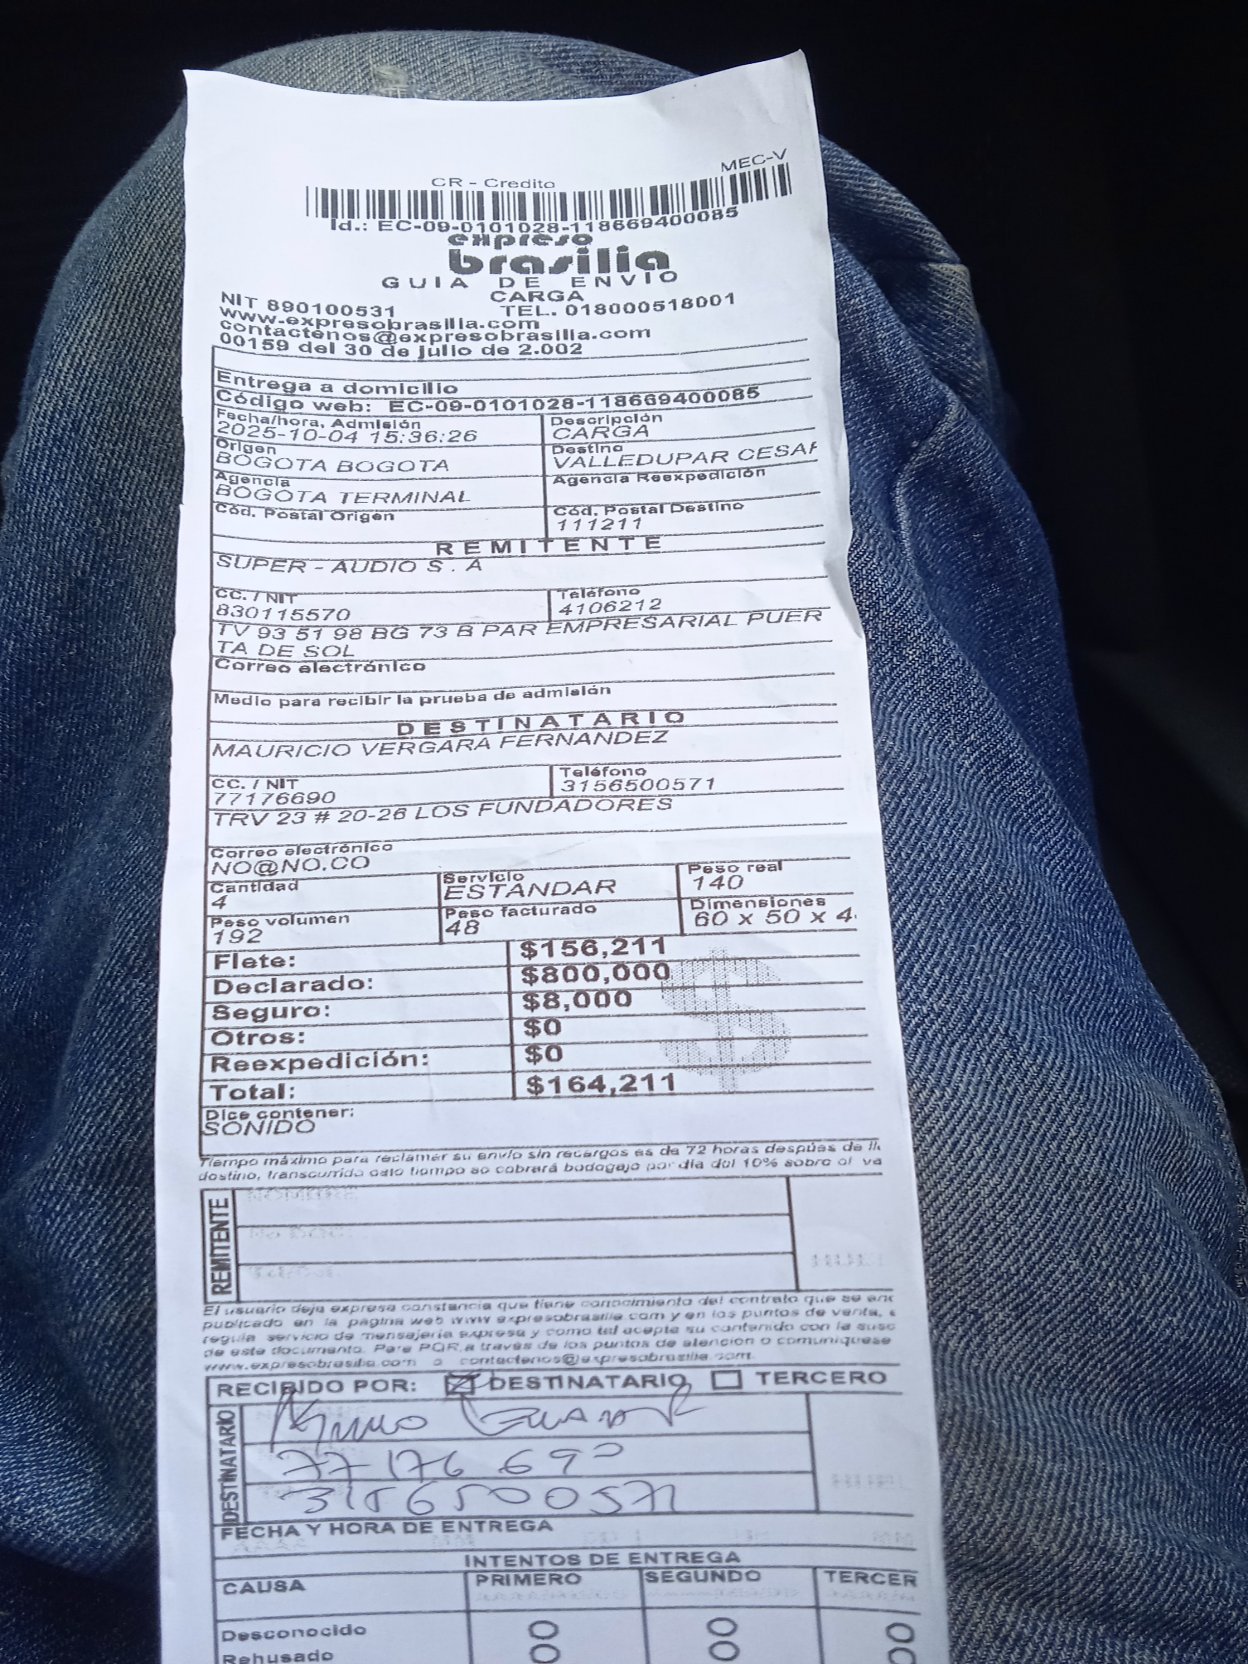 MEC-V
CR - Credito
Id.: EC-09-0101028-118669400085
expreso
brasilia
GUIA DE ENVIO
CARGA
NIT 890100531 TEL. 018000518001
www.expresobrasilia.com
contactenos@expresobrasilia.com
00159 del 30 de julio de 2.002
Entrega a domicilio
Código web: EC-09-0101028-118669400085
Fecha/hora, Admisión Descripción
2025-10-04 15:36:26 CARGA
Origen Destino
BOGOTA BOGOTA VALLEDUPAR CESAR
Agencia Agencia Reexpedición
BOGOTA TERMINAL
Cód. Postal Origen Cód. Postal Destino
111211
REMITENTE
SUPER - AUDIO S . A
CC. / NIT Teléfono
830115570 4106212
TV 93 51 98 BG 73 B PAR EMPRESARIAL PUER
TA DE SOL
Correo electrónico
Medio para recibir la prueba de admisión
DESTINATARIO
MAURICIO VERGARA FERNANDEZ
CC. / NIT Teléfono
77176690 3156500571
TRV 23 # 20-26 LOS FUNDADORES
Correo electrónico
NO@NO.CO
Cantidad Servicio Peso real
4 ESTANDAR 140
Peso volumen Peso facturado Dimensiones
192 48 60 x 50 x 4
Flete: $156,211
Declarado: $800,000
Seguro: $8,000
Otros: $0
Reexpedición: $0
Total: $164,211
Dice contener:
SONIDO
Tiempo máximo para reclamar su envío sin recargos es de 72 horas despúes de
destino, transcurrido este tiempo se cobrará bodegaje por día del 10% sobre el va
REMITENTE
El usuario deja expresa constancia que tiene conocimiento del contrato que se
publicado en la página web www expresobrasilia com y en los puntos de venta,
regula servicio de mensajería expresa y como tal acepta su contenido con la susc
de este documento. Para PQR a través de los puntos de atención o comuniquese
www.expresobrasilia.com o contactenos@expresobrasilia.com.
RECIBIDO POR: DESTINATARIO TERCERO
DESTINATARIO
77176690
3156500571
FECHA Y HORA DE ENTREGA
INTENTOS DE ENTREGA
CAUSA PRIMERO SEGUNDO TERCER
Desconocido
Rehusado